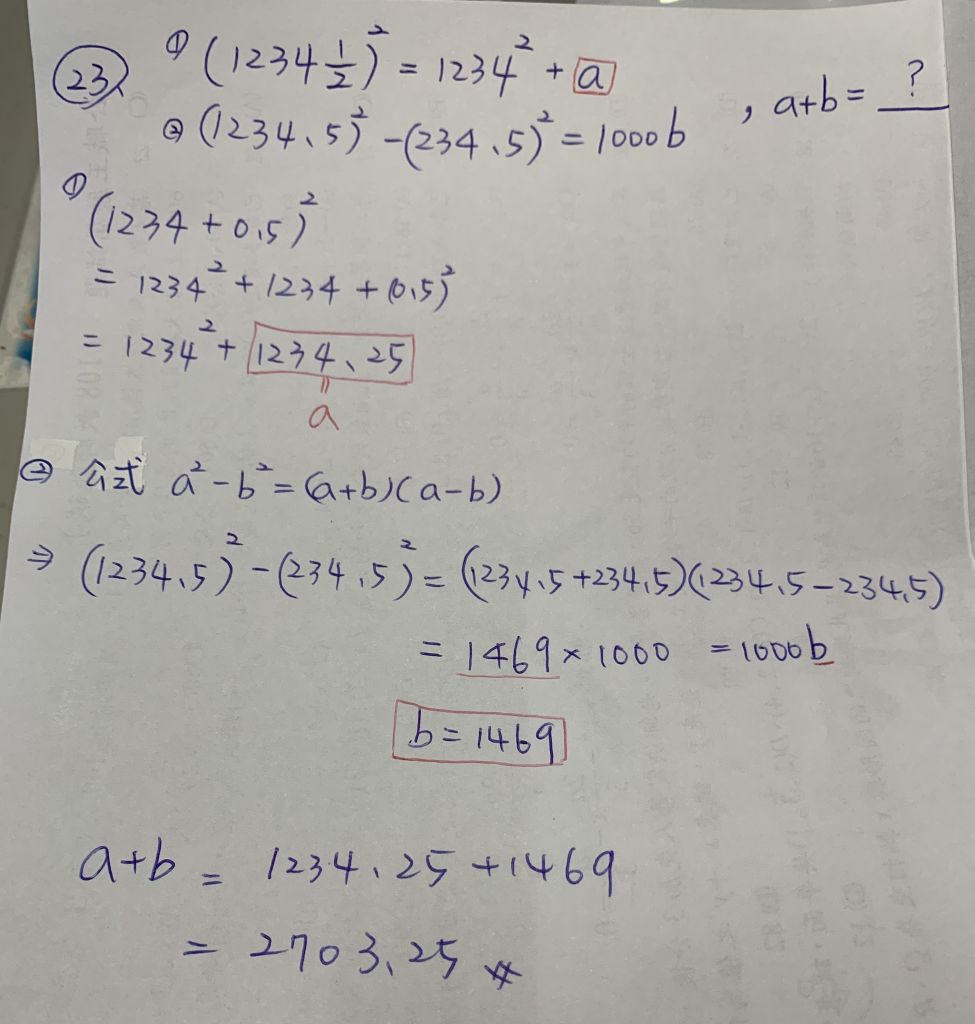 23. ① (1234 1/2)² = 1234² + a
② (1234.5)² - (234.5)² = 1000b , a+b = ?
①
(1234 + 0.5)²
= 1234² + 1234 + (0.5)²
= 1234² + 1234.25
=
a
② 公式 a² - b² = (a+b)(a-b)
⇒ (1234.5)² - (234.5)² = (1234.5+234.5)(1234.5-234.5)
= 1469 × 1000 = 1000b
b = 1469
a+b = 1234.25 + 1469
= 2703.25 #